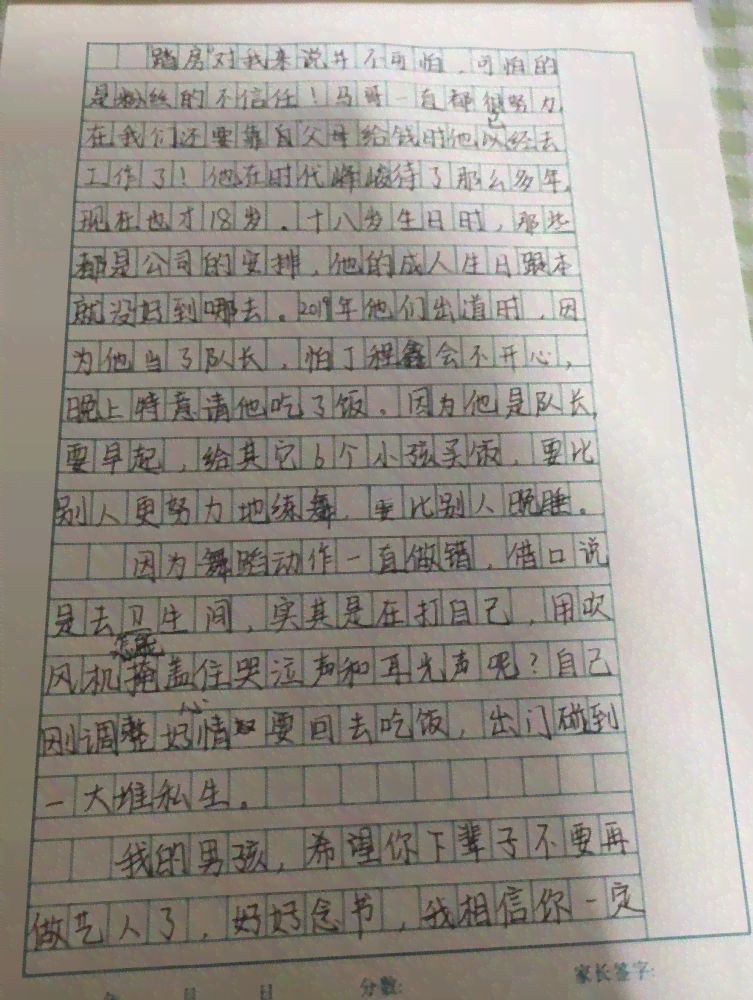 踏房"对我来说并不可怕，可怕的
是粉丝的不信任！马哥一直都很努力
在我们还要靠自父母给钱时他已经去
工作了！他在时代峰峻待了那么多年，
现在也才18岁。十八岁生日时，那些
都是公司的安排，他的成人生日跟本
就没好到哪去。2019年他们出道时，因
为他当了队长，怕丁程鑫会不开心，
晚上特意请他吃了饭。因为他是队长，
要早起，给其它6个小孩买饭，要比
别人更努力地练舞，要比别人晚睡。
因为舞蹈动作一直做错，借口说
是去卫生间，实其是在打自己，用吹
风机怎能掩盖住哭泣声和耳光声呢？自己
刚调整好心情又要回去吃饭，出门碰到
一大堆私生。
我的男孩，希望你下辈子不要再
做艺人了，好好念书，我相信你一定
年 月 日 分数: 家长签字: